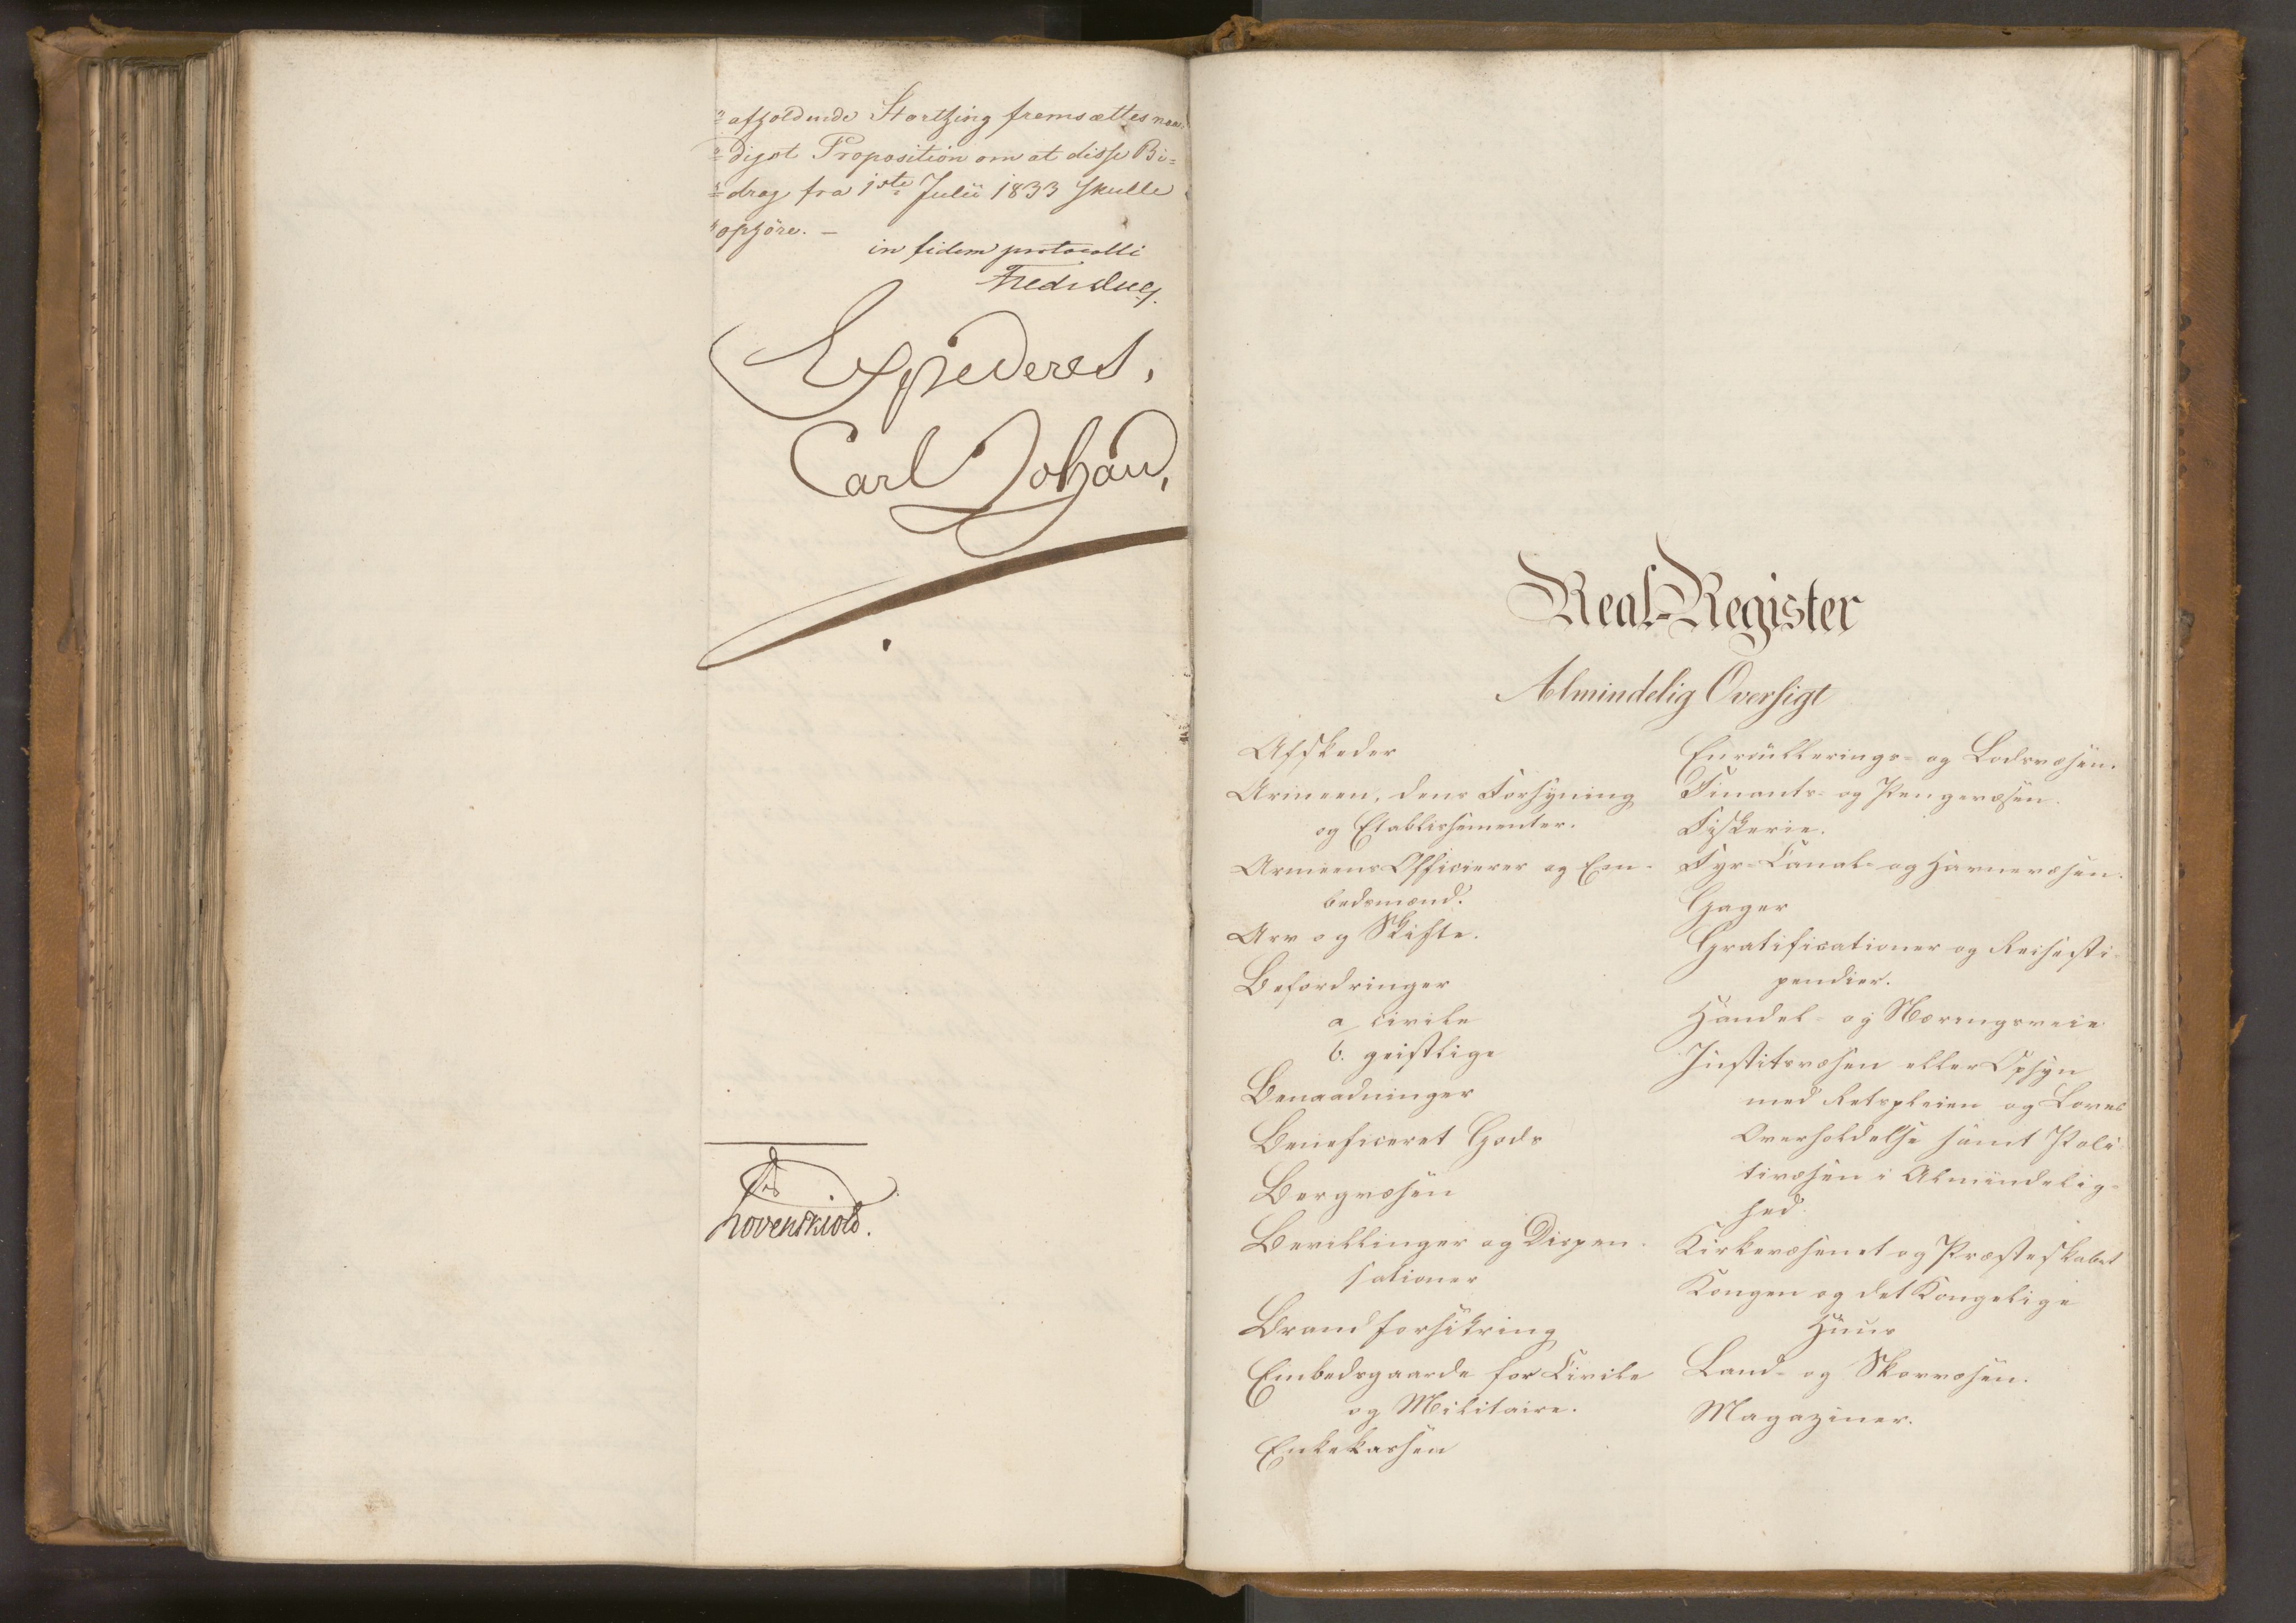 afholdende Storthing fremsættes naa-
digst Proposition om at disse Bi-
drag fra 1ste Julii 1833 skulle
ophöre. -
in fidem protocolli
Fredr Due
Expederes,
Carl Johan,
Løvenskiold.
Real-Register
Almindelig Oversigt
Afskeder
Armeen, dens Forsyning
og Etablissementer.
Armeens Officierer og Em-
bedsmænd.
Arv og Skifte.
Befordringer
a civile
b. geistlige
Benaadninger
Beneficeret Gods
Bergvæsen
Bevillinger og Dispen-
sationer
Brandforsikring
Embedsgaarde for Civile
og Militaire.
Enkekassen
Enroullerings- og Lodsvæsen.
Finants- og Pengevæsen.
Fiskerie.
Fyr- Canal- og Havnevæsen.
Gager
Gratificationer og Reisesti-
pendier.
Handel- og Næringsveie
Justitsvæsen eller Opsyn
med Retspleien og Loves
Overholdelse samt Poli-
tivæsen i Almindelig-
hed
Kirkevæsenet og Præsteskabet
Kongen og det Kongelige
Huus
Land- og Skovvæsen.
Magaziner.